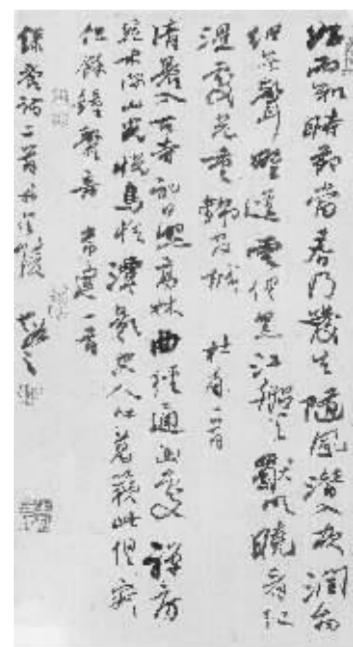 好雨知時節當春乃發生隨風潛入夜潤物
細無聲野徑雲俱黑江船火獨明曉看紅
濕處花重錦官城 杜甫一首
清晨入古寺初日照高林曲徑通幽處禪房
花木深山光悅鳥性潭影空人心萬籟此俱寂
但餘鐘磬音 常建一首
錄唐詩二首於金陵